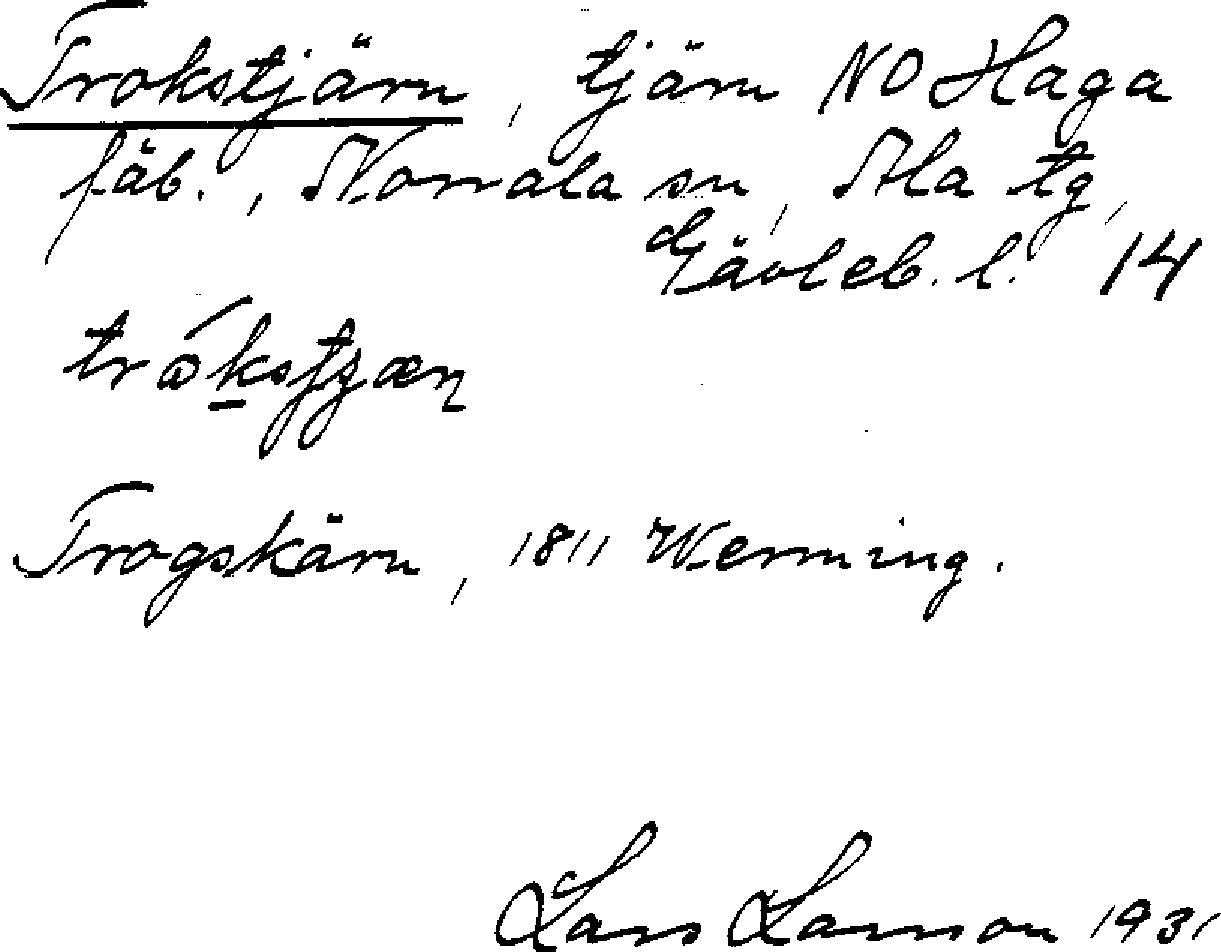 Trokstjärn, tjärn NO Haga
fäb., Norrala sn, Ala tg,
Gävleb. l. 14
Trogskärn, 1811 Werming.
Lars Larsson 1931